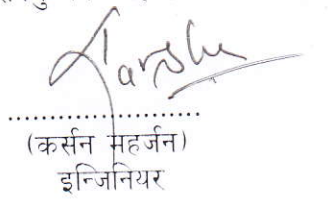 (कर्सन महर्जन)
इन्जिनियर